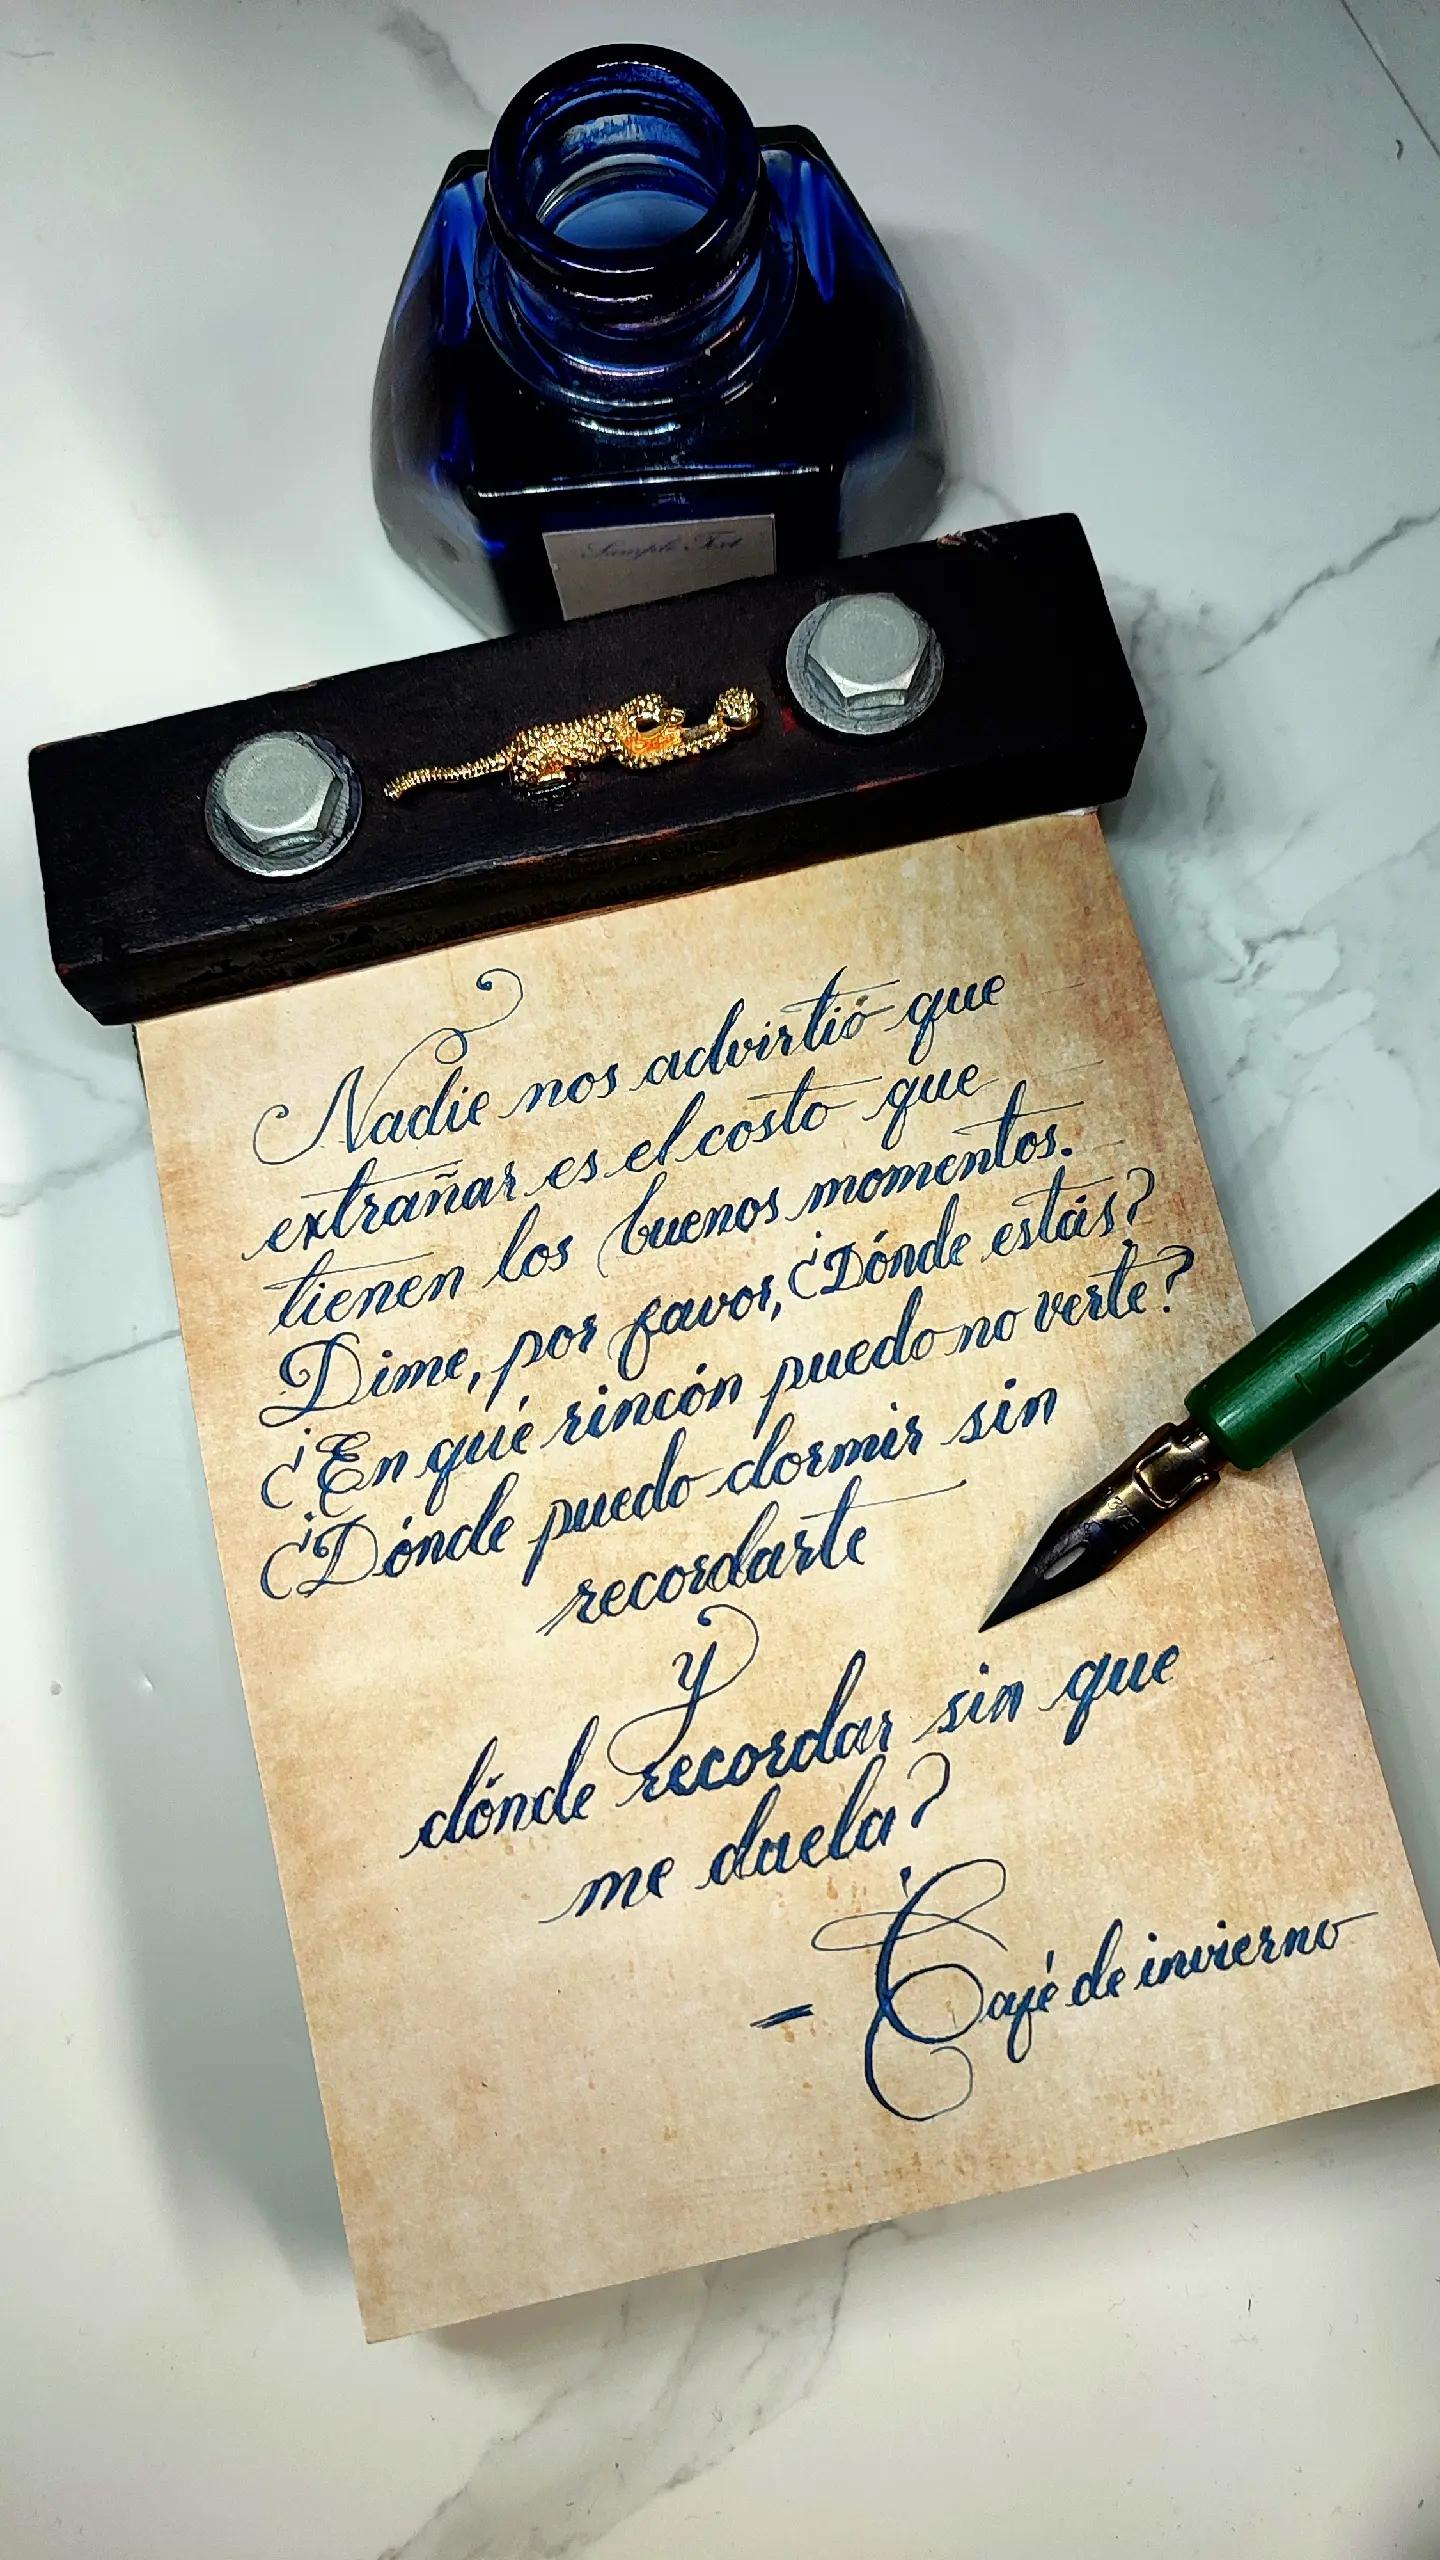 Sample Text
Nadie nos advirtió que
extrañar es el costo que
tienen los buenos momentos.
Dime, por favor, ¿Dónde estás?
¿En qué rincón puedo no verte?
¿Dónde puedo dormir sin
recordarte
y
dónde recordar sin que
me duela?
- Café de invierno